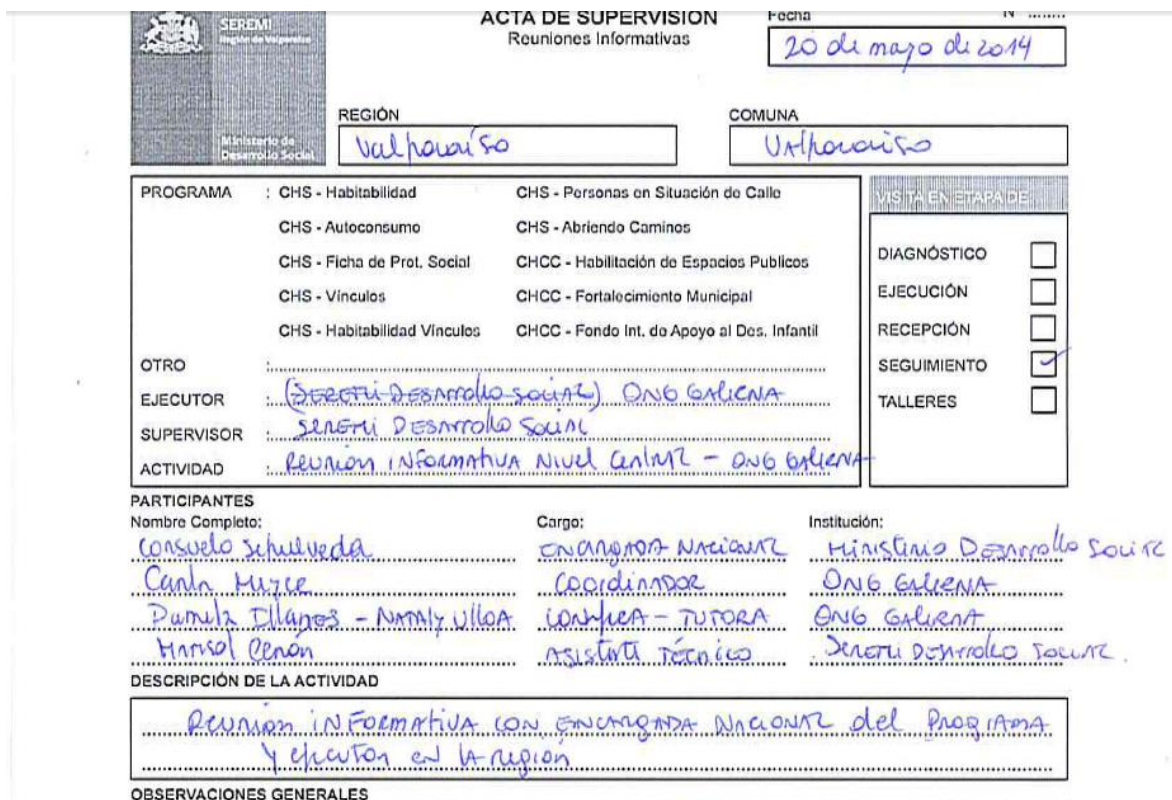 SEREMI
Región de Valparaíso
Ministerio de
Desarrollo Social
ACTA DE SUPERVISIÓN
Reuniones Informativas
Fecha
N° ........
20 de mayo de 2014
REGIÓN
Valparaíso
COMUNA
Valparaíso
PROGRAMA : CHS - Habitabilidad CHS - Personas en Situación de Calle
CHS - Autoconsumo CHS - Abriendo Caminos
CHS - Ficha de Prot. Social CHCC - Habilitación de Espacios Publicos
CHS - Vínculos CHCC - Fortalecimiento Municipal
CHS - Habitabilidad Vínculos CHCC - Fondo Int. de Apoyo al Des. Infantil
OTRO :
EJECUTOR : (SEREMI DESArrollo Social) ONG GALERNA
SUPERVISOR : SEREMI DESArrollo Social
ACTIVIDAD : Reunión INFORMATIVA Nivel Central - ONG GALERNA
VISITA EN ETAPA DE
DIAGNÓSTICO
EJECUCIÓN
RECEPCIÓN
SEGUIMIENTO ✓
TALLERES
PARTICIPANTES
Nombre Completo: Cargo: Institución:
Consuelo Sepulveda ENCARGADA NACIONAL Ministerio DESArrollo Social
Carla COORDINADOR ONG GALERNA
Illanes - NATALY ULLOA - TUTORA ONG GALERNA
Marisol Cerón ASistente Técnico SEREMI DESArrollo Social.
DESCRIPCIÓN DE LA ACTIVIDAD
Reunión INFORMATIVA CON ENCARGADA NACIONAL del Programa
y ejecutor en la región
OBSERVACIONES GENERALES